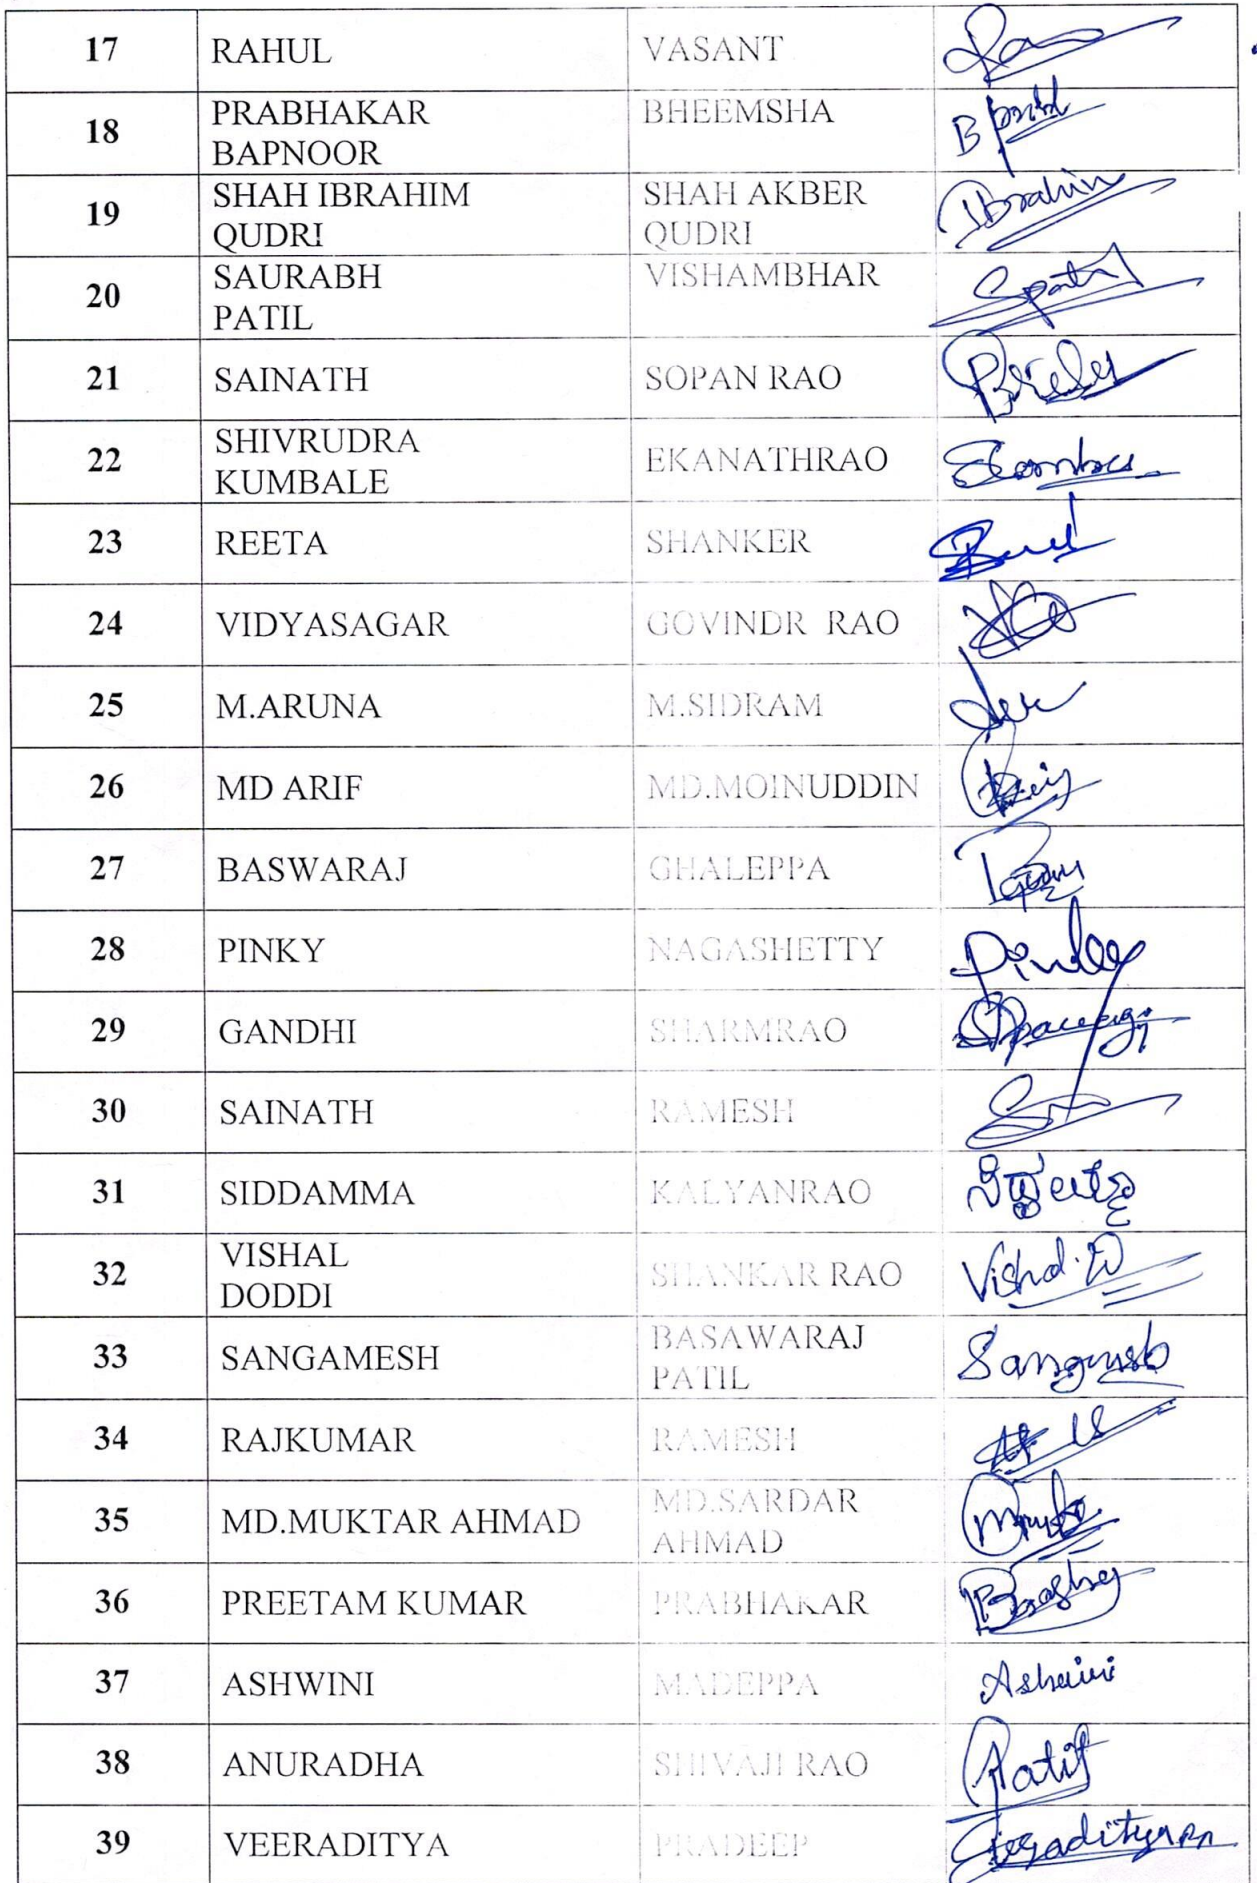 17 RAHUL VASANT
18 PRABHAKAR BHEEMSHA
BAPNOOR
19 SHAH IBRAHIM SHAH AKBER Ibrahim
QUDRI QUDRI
20 SAURABH VISHAMBHAR Spatil
PATIL
21 SAINATH SOPAN RAO
22 SHIVRUDRA EKANATHRAO
KUMBALE
23 REETA SHANKER
24 VIDYASAGAR GOVINDR RAO
25 M.ARUNA M.SIDRAM
26 MD ARIF MD.MOINUDDIN
27 BASWARAJ GHALEPPA
28 PINKY NAGASHETTY Pinky
29 GANDHI SHARMRAO
30 SAINATH RAMESH
31 SIDDAMMA KALYANRAO
32 VISHAL SHANKAR RAO Vishal.D
DODDI
33 SANGAMESH BASAWARAJ
PATIL
34 RAJKUMAR RAMESH
35 MD.MUKTAR AHMAD MD.SARDAR
AHMAD
36 PREETAM KUMAR PRABHAKAR
37 ASHWINI MADEPPA Ashwini
38 ANURADHA SHIVAJI RAO
39 VEERADITYA PRADEEP